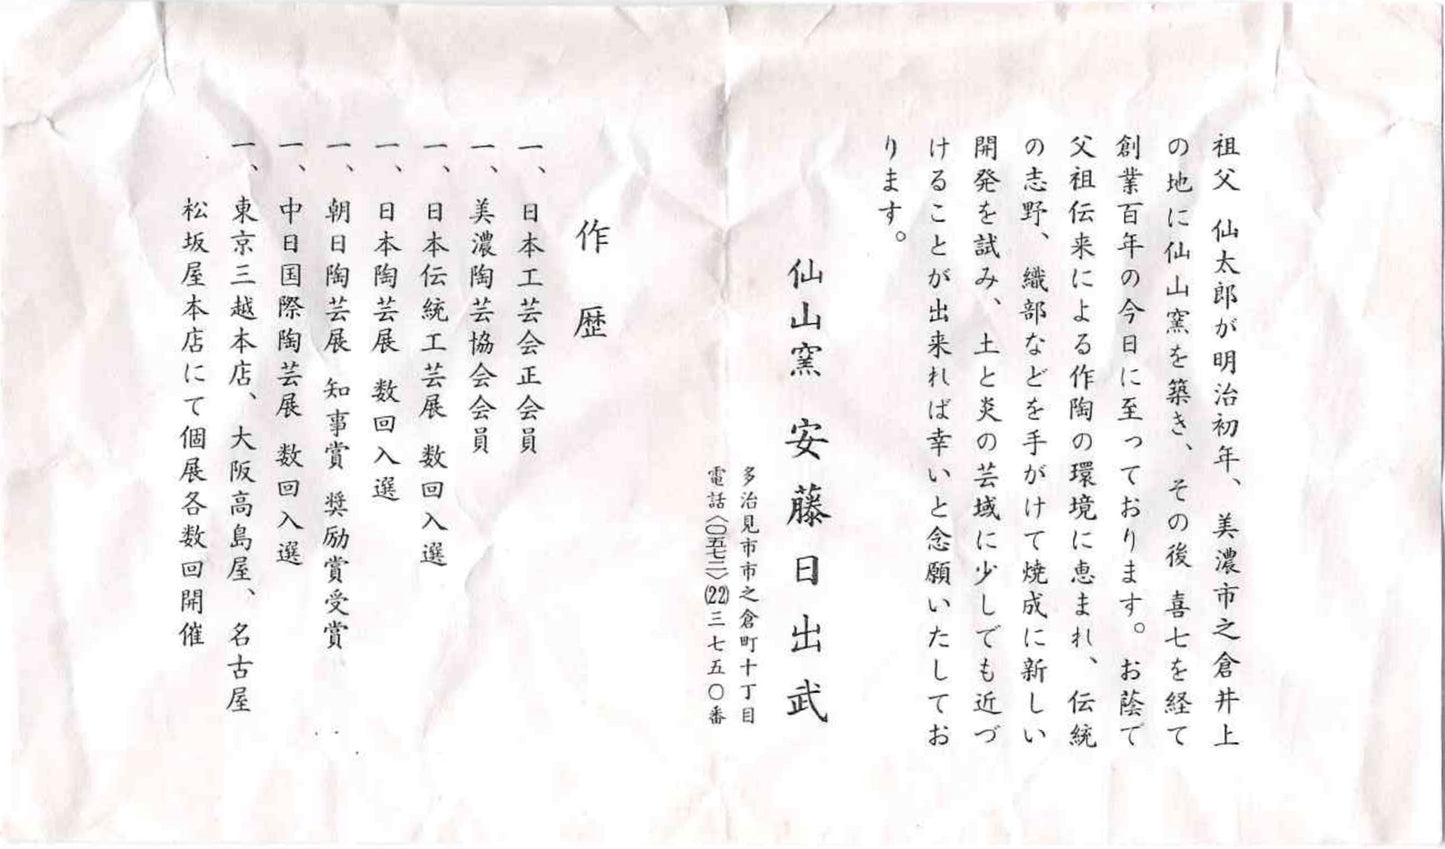 祖父 仙太郎が明治初年、美濃市之倉井上
の地に仙山窯を築き、その後 喜七を経て
創業百年の今日に至っております。お蔭で
父祖伝来による作陶の環境に恵まれ、伝統
の志野、織部などを手がけて焼成に新しい
開発を試み、土と炎の芸域に少しでも近づ
けることが出来れば幸いと念願いたしてお
ります。
仙山窯 安藤日出武
多治見市市之倉町十丁目
電話〈〇五七二〉(22)三七五〇番
作歴
一、日本工芸会正会員
一、美濃陶芸協会会員
一、日本伝統工芸展 数回入選
一、日本陶芸展 数回入選
一、朝日陶芸展 知事賞 奨励賞受賞
一、中日国際陶芸展 数回入選
一、東京三越本店、大阪高島屋、名古屋
松坂屋本店にて個展各数回開催